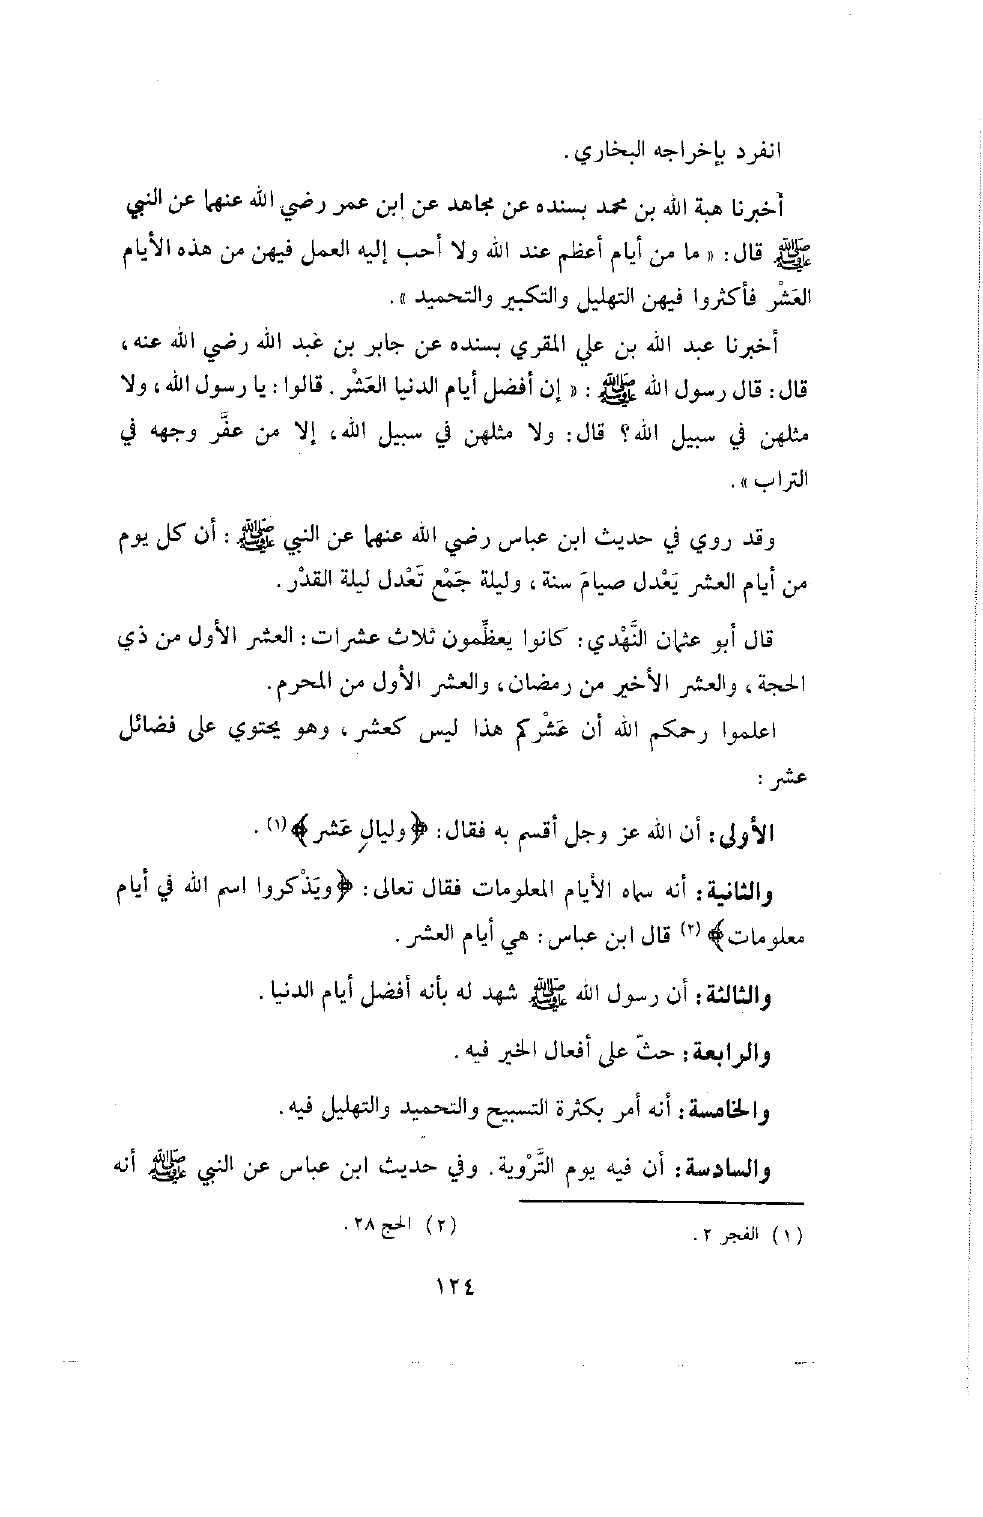 انفرد بإخراجه البخاري .
أخبرنا هبة الله بن محمد بسنده عن مجاهد عن ابن عمر رضي الله عنهما عن النبي
ﷺ قال : « ما من أيام أعظم عند الله ولا أحب إليه العمل فيهن من هذه الأيام
العَشْر فأكثروا فيهن التهليل والتكبير والتحميد » .
أخبرنا عبد الله بن علي المقري بسنده عن جابر بن عَبد الله رضي الله عنه ،
قال : قال رسول الله ﷺ : « إن أفضل أيام الدنيا العَشْر . قالوا : يا رسول الله ، ولا
مثلهن في سبيل الله ؟ قال : ولا مثلهن في سبيل الله ، إلا من عفَّر وجهه في
التراب » .
وقد روي في حديث ابن عباس رضي الله عنهما عن النبي ﷺ : أن كل يوم
من أيام العشر يَعْدل صيامَ سنة ، وليلة جَمْع تَعْدل ليلة القدْر .
قال أبو عثمان النَّهْدي : كانوا يعظِّمون ثلاث عشرات : العشر الأول من ذي
الحجة ، والعشر الأخير من رمضان ، والعشر الأول من المحرم .
اعلموا رحمكم الله أن عَشْركم هذا ليس كعشر ، وهو يحتوي على فضائل
عشر :
الأولى : أن الله عز وجل أقسم به فقال : ﴿وليالٍ عَشر﴾(١) .
والثانية : أنه سماه الأيام المعلومات فقال تعالى : ﴿ويَذْكروا اسم الله في أيام
معلومات﴾(٢) قال ابن عباس : هي أيام العشر .
والثالثة : أن رسول الله ﷺ شهد له بأنه أفضل أيام الدنيا .
والرابعة : حثّ على أفعال الخير فيه .
والخامسة : أنه أمر بكثرة التسبيح والتحميد والتهليل فيه .
والسادسة : أن فيه يوم التَّرْوية . وفي حديث ابن عباس عن النبي ﷺ أنه
(١) الفجر ٢ . (٢) الحج ٢٨ .
١٢٤